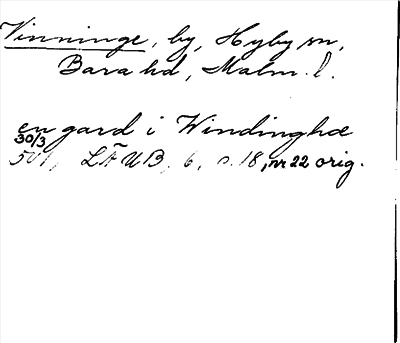 Vinninge, by, Hyby sn,
Bara hd, Malm. l.
en gard i Windinghæ
30/3
501, LÄUB, 6, s. 18, nr 22 orig.